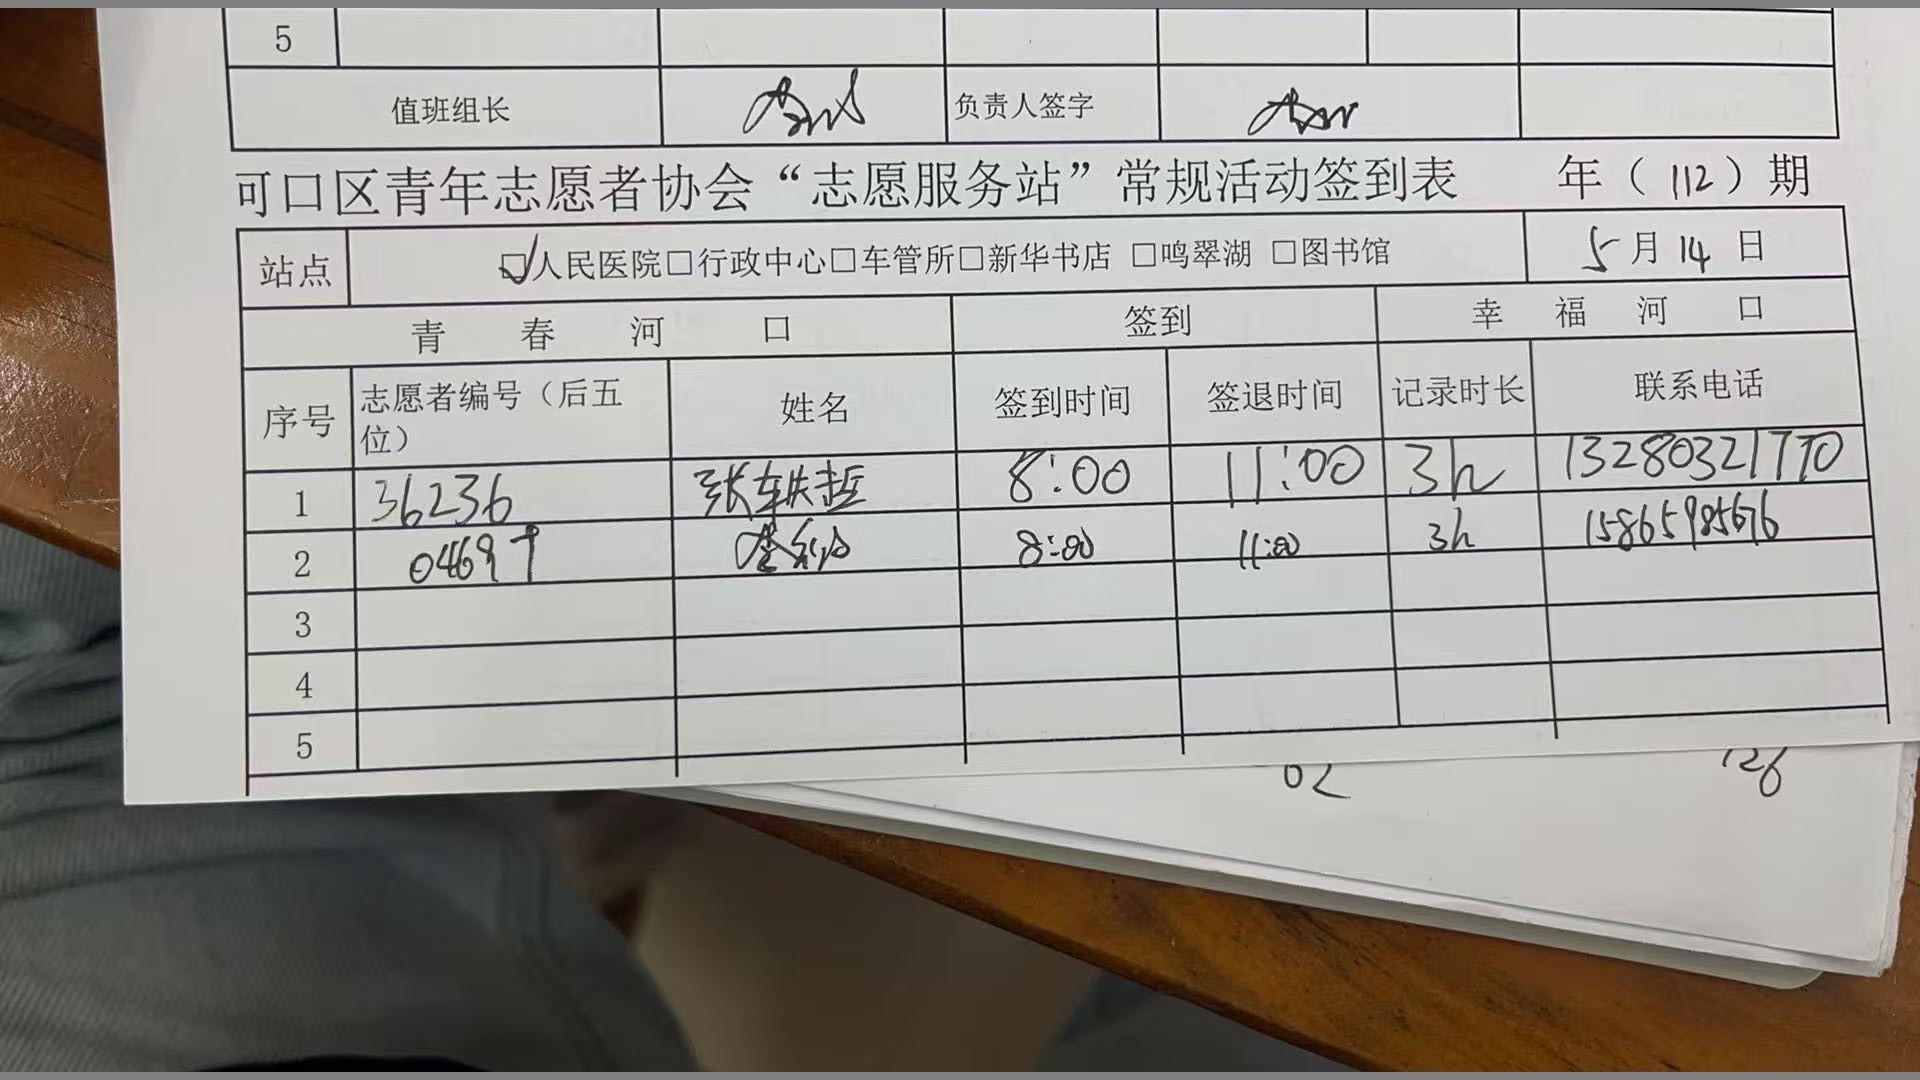 5
值班组长 负责人签字
可口区青年志愿者协会“志愿服务站”常规活动签到表 年（112）期
站点 □人民医院□行政中心□车管所□新华书店 □鸣翠湖 □图书馆 5月14日
青春河口 签到 幸福河口
序号 志愿者编号（后五位） 姓名 签到时间 签退时间 记录时长 联系电话
1 36236 张轶哲 8:00 11:00 3h 13280321770
2 04697 8:00 11:00 3h 15865985676
3
4
5
02 126